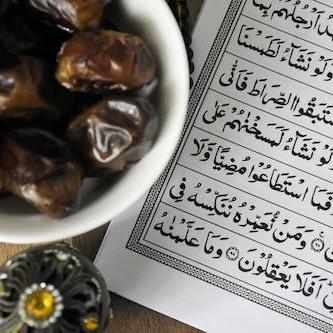 اَرْجُلُهُمْ بِمَا
لَوْ نَشَآءُ لَطَمَسْنَا
فَاسْتَبَقُوا الصِّرَاطَ فَاَنّٰى
لَوْ نَشَآءُ لَمَسَخْنٰهُمْ عَلٰى
فَمَا اسْتَطَاعُوْا مُضِيًّا وَّلَا
وَمَنْ نُّعَمِّرْهُ نُنَكِّسْهُ فِى
اَفَلَا يَعْقِلُوْنَ ۝ وَمَا عَلَّمْنٰهُ